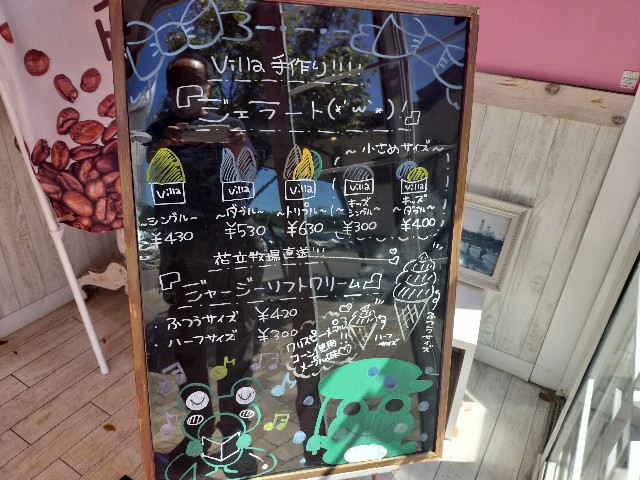 Villa 手作り!!!!
ジェラート(*'ω'*)!
〜小さめサイズ〜
Villa Villa Villa Villa Villa
〜シングル〜 〜ダブル〜 〜トリプル〜 〜キッズシングル〜 〜キッズダブル〜
¥430 ¥530 ¥630 ¥300 ¥400
牧場直送!!!
ジャージーソフトクリーム
・ふつうサイズ ¥420
・ハーフサイズ ¥300
クリスピーメープル
コーン使用!!
メープル味♡
ハーフサイズ
ふつうサイズ